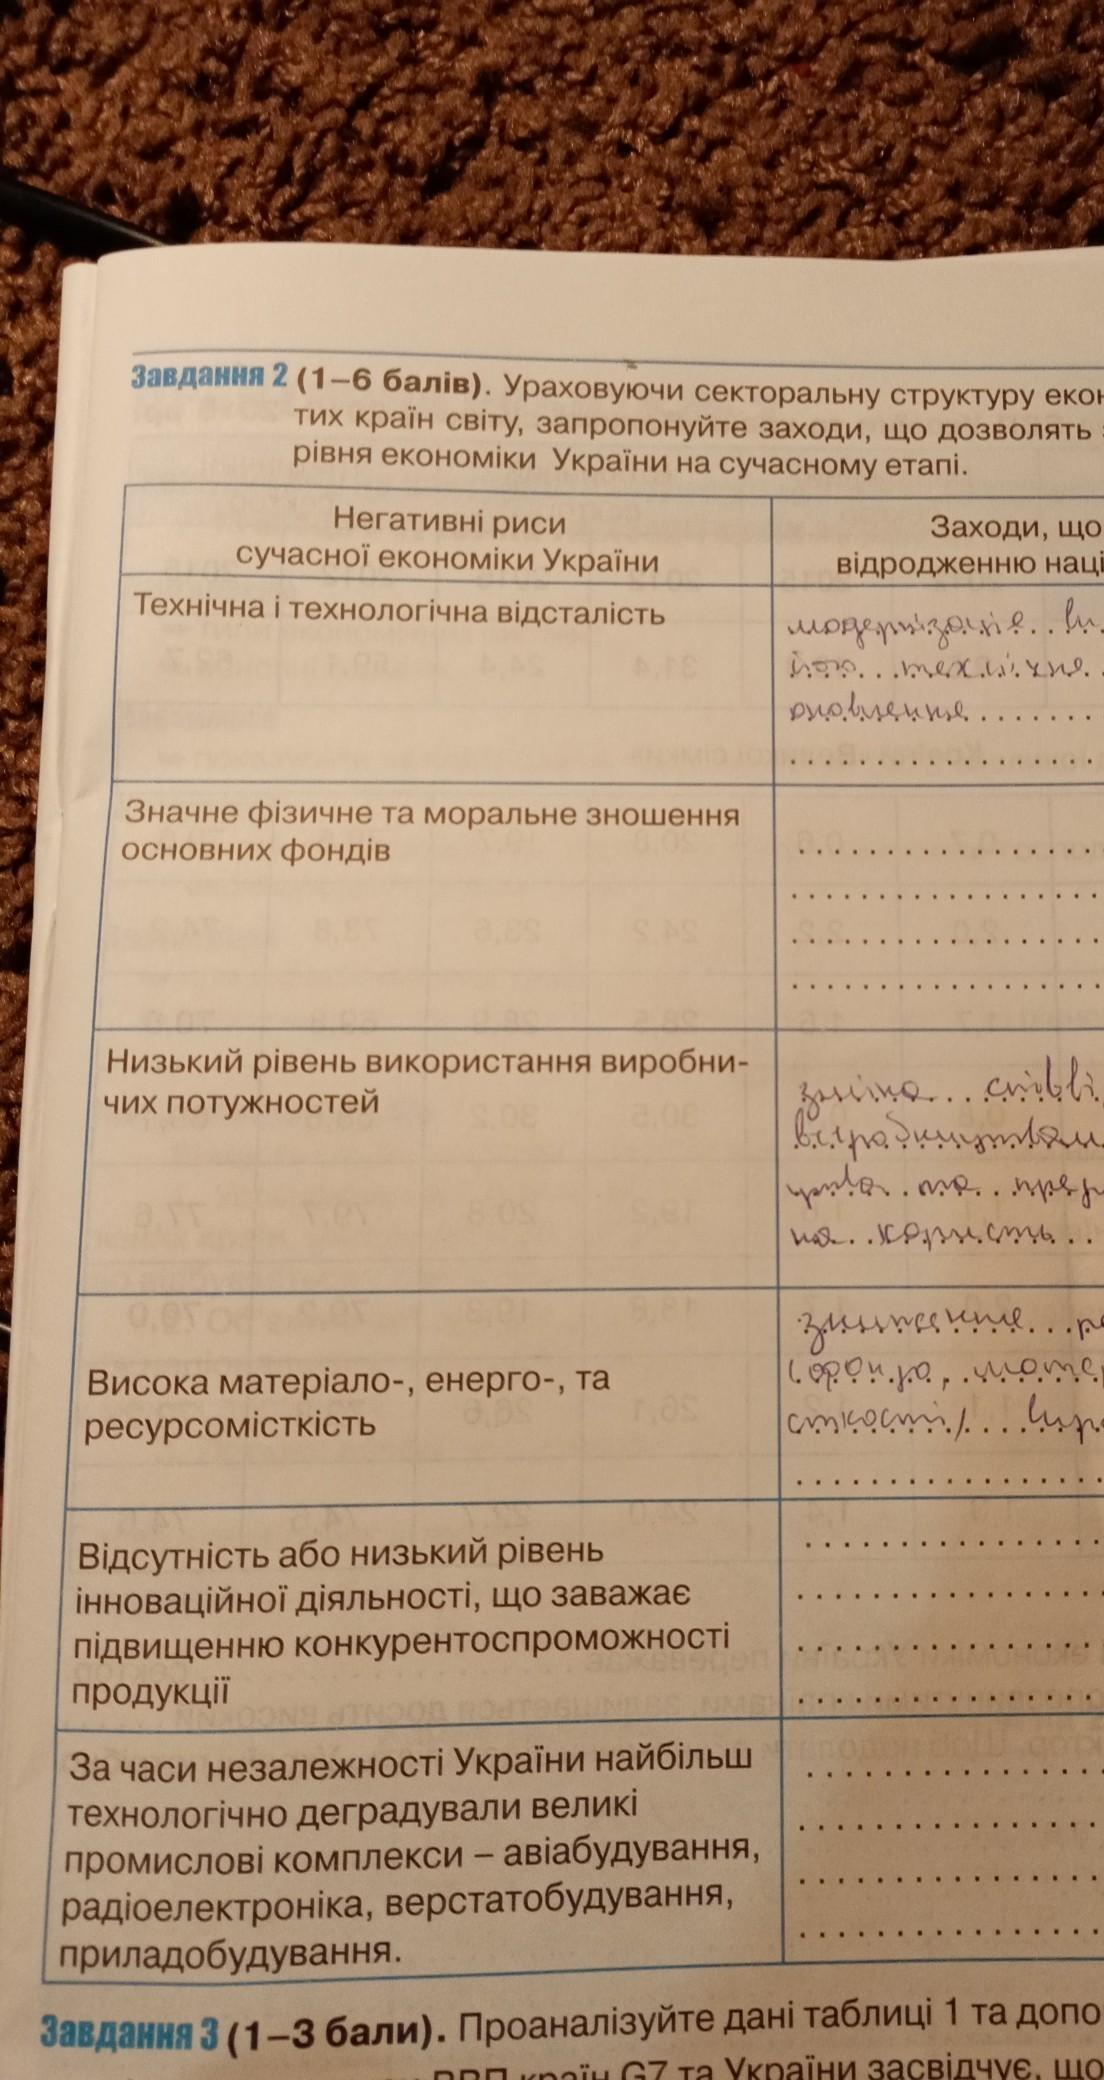 Завдання 2 (1–6 балів). Ураховуючи секторальну структуру екон
тих країн світу, запропонуйте заходи, що дозволять
рівня економіки України на сучасному етапі.
Негативні риси
сучасної економіки України
Заходи, що
відродженню наці
Технічна і технологічна відсталість
модернізація
технічне
оновлення
Значне фізичне та моральне зношення
основних фондів
Низький рівень використання виробни-
чих потужностей
зміна співві
виробництвам
та
на користь
Висока матеріало-, енерго-, та
ресурсомісткість
зниження
Відсутність або низький рівень
інноваційної діяльності, що заважає
підвищенню конкурентоспроможності
продукції
За часи незалежності України найбільш
технологічно деградували великі
промислові комплекси – авіабудування,
радіоелектроніка, верстатобудування,
приладобудування.
Завдання 3 (1–3 бали). Проаналізуйте дані таблиці 1 та допо
ВВП країн G7 та України засвідчує, що